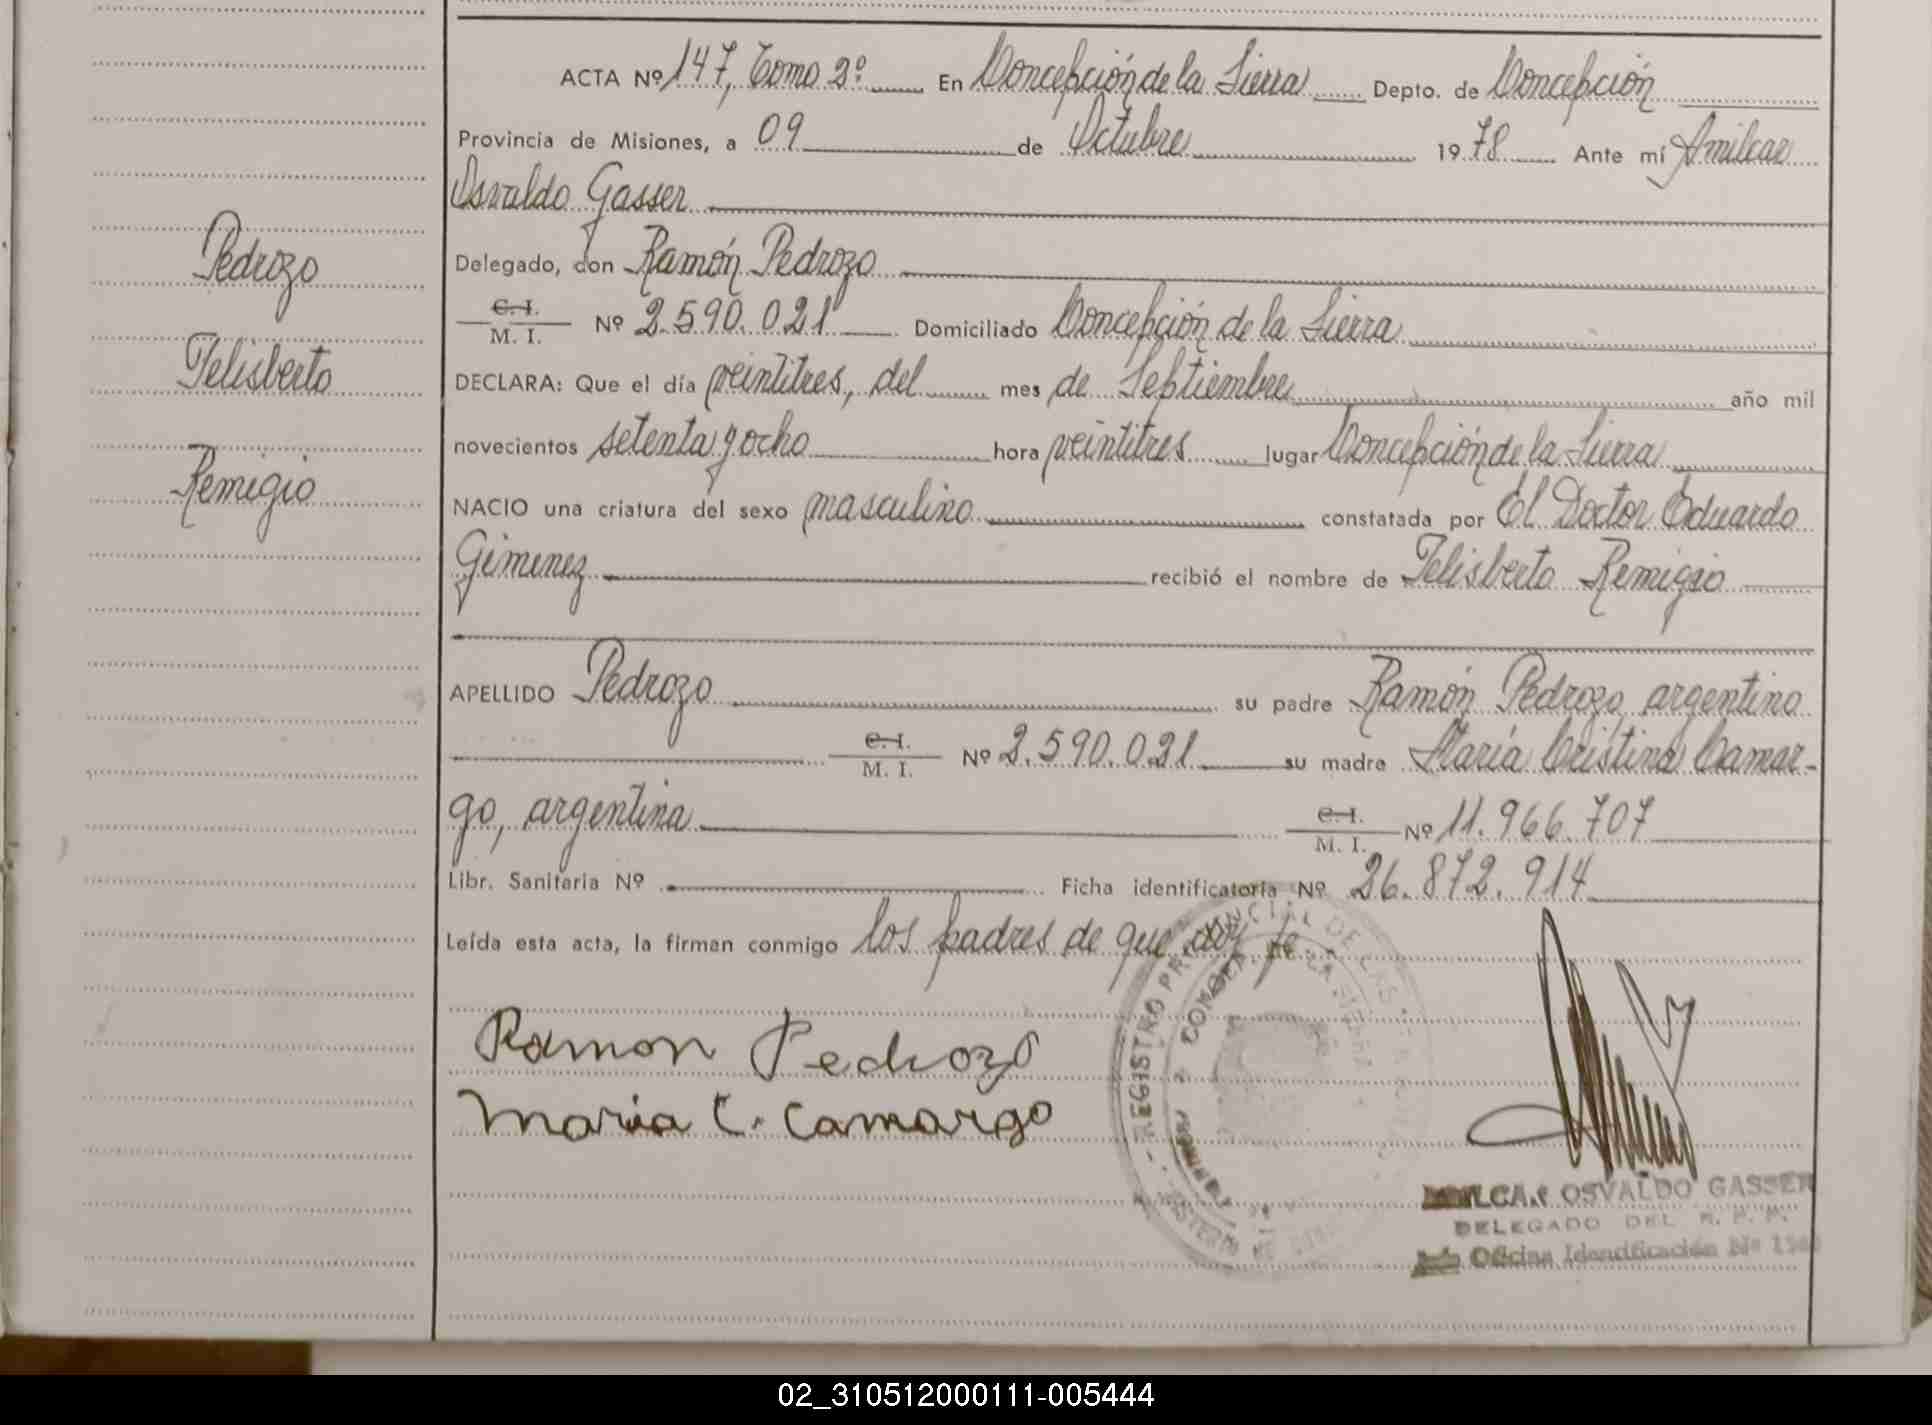 ACTA Nº 147, Tomo 2º En Concepción de la Sierra Depto. de Concepción
Provincia de Misiones, a 09 de Octubre 1978 Ante mí Amilcar
Osvaldo Gasser
Delegado, don Ramón Pedrozo
C. I.
M. I. Nº 2.590.021 Domiciliado Concepción de la Sierra
DECLARA: Que el día veintitres, del mes de Septiembre año mil
novecientos setenta y ocho hora veintitres lugar Concepción de la Sierra
NACIO una criatura del sexo masculino constatada por El Doctor Eduardo
Gimenez recibió el nombre de Felisberto Remigio
APELLIDO Pedrozo su padre Ramón Pedrozo argentino
C. I.
M. I. Nº 2.590.021 su madre María Cristina Camar-
go, argentina C. I.
M. I. Nº 11.966.707
Libr. Sanitaria Nº Ficha identificatoria Nº 26.872.914
Leída esta acta, la firman conmigo los padres de que doy fe
Pedrozo
Felisberto
Remigio
Ramon Pedrozo
Maria C. Camargo
REGISTRO PROVINCIAL DE LAS
AMILCAR OSVALDO GASSER
DELEGADO DEL R. P. P.
Oficina Identificación Nº
02_310512000111-005444